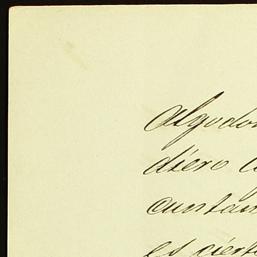 Algodon
diero
cuntam
es cierto